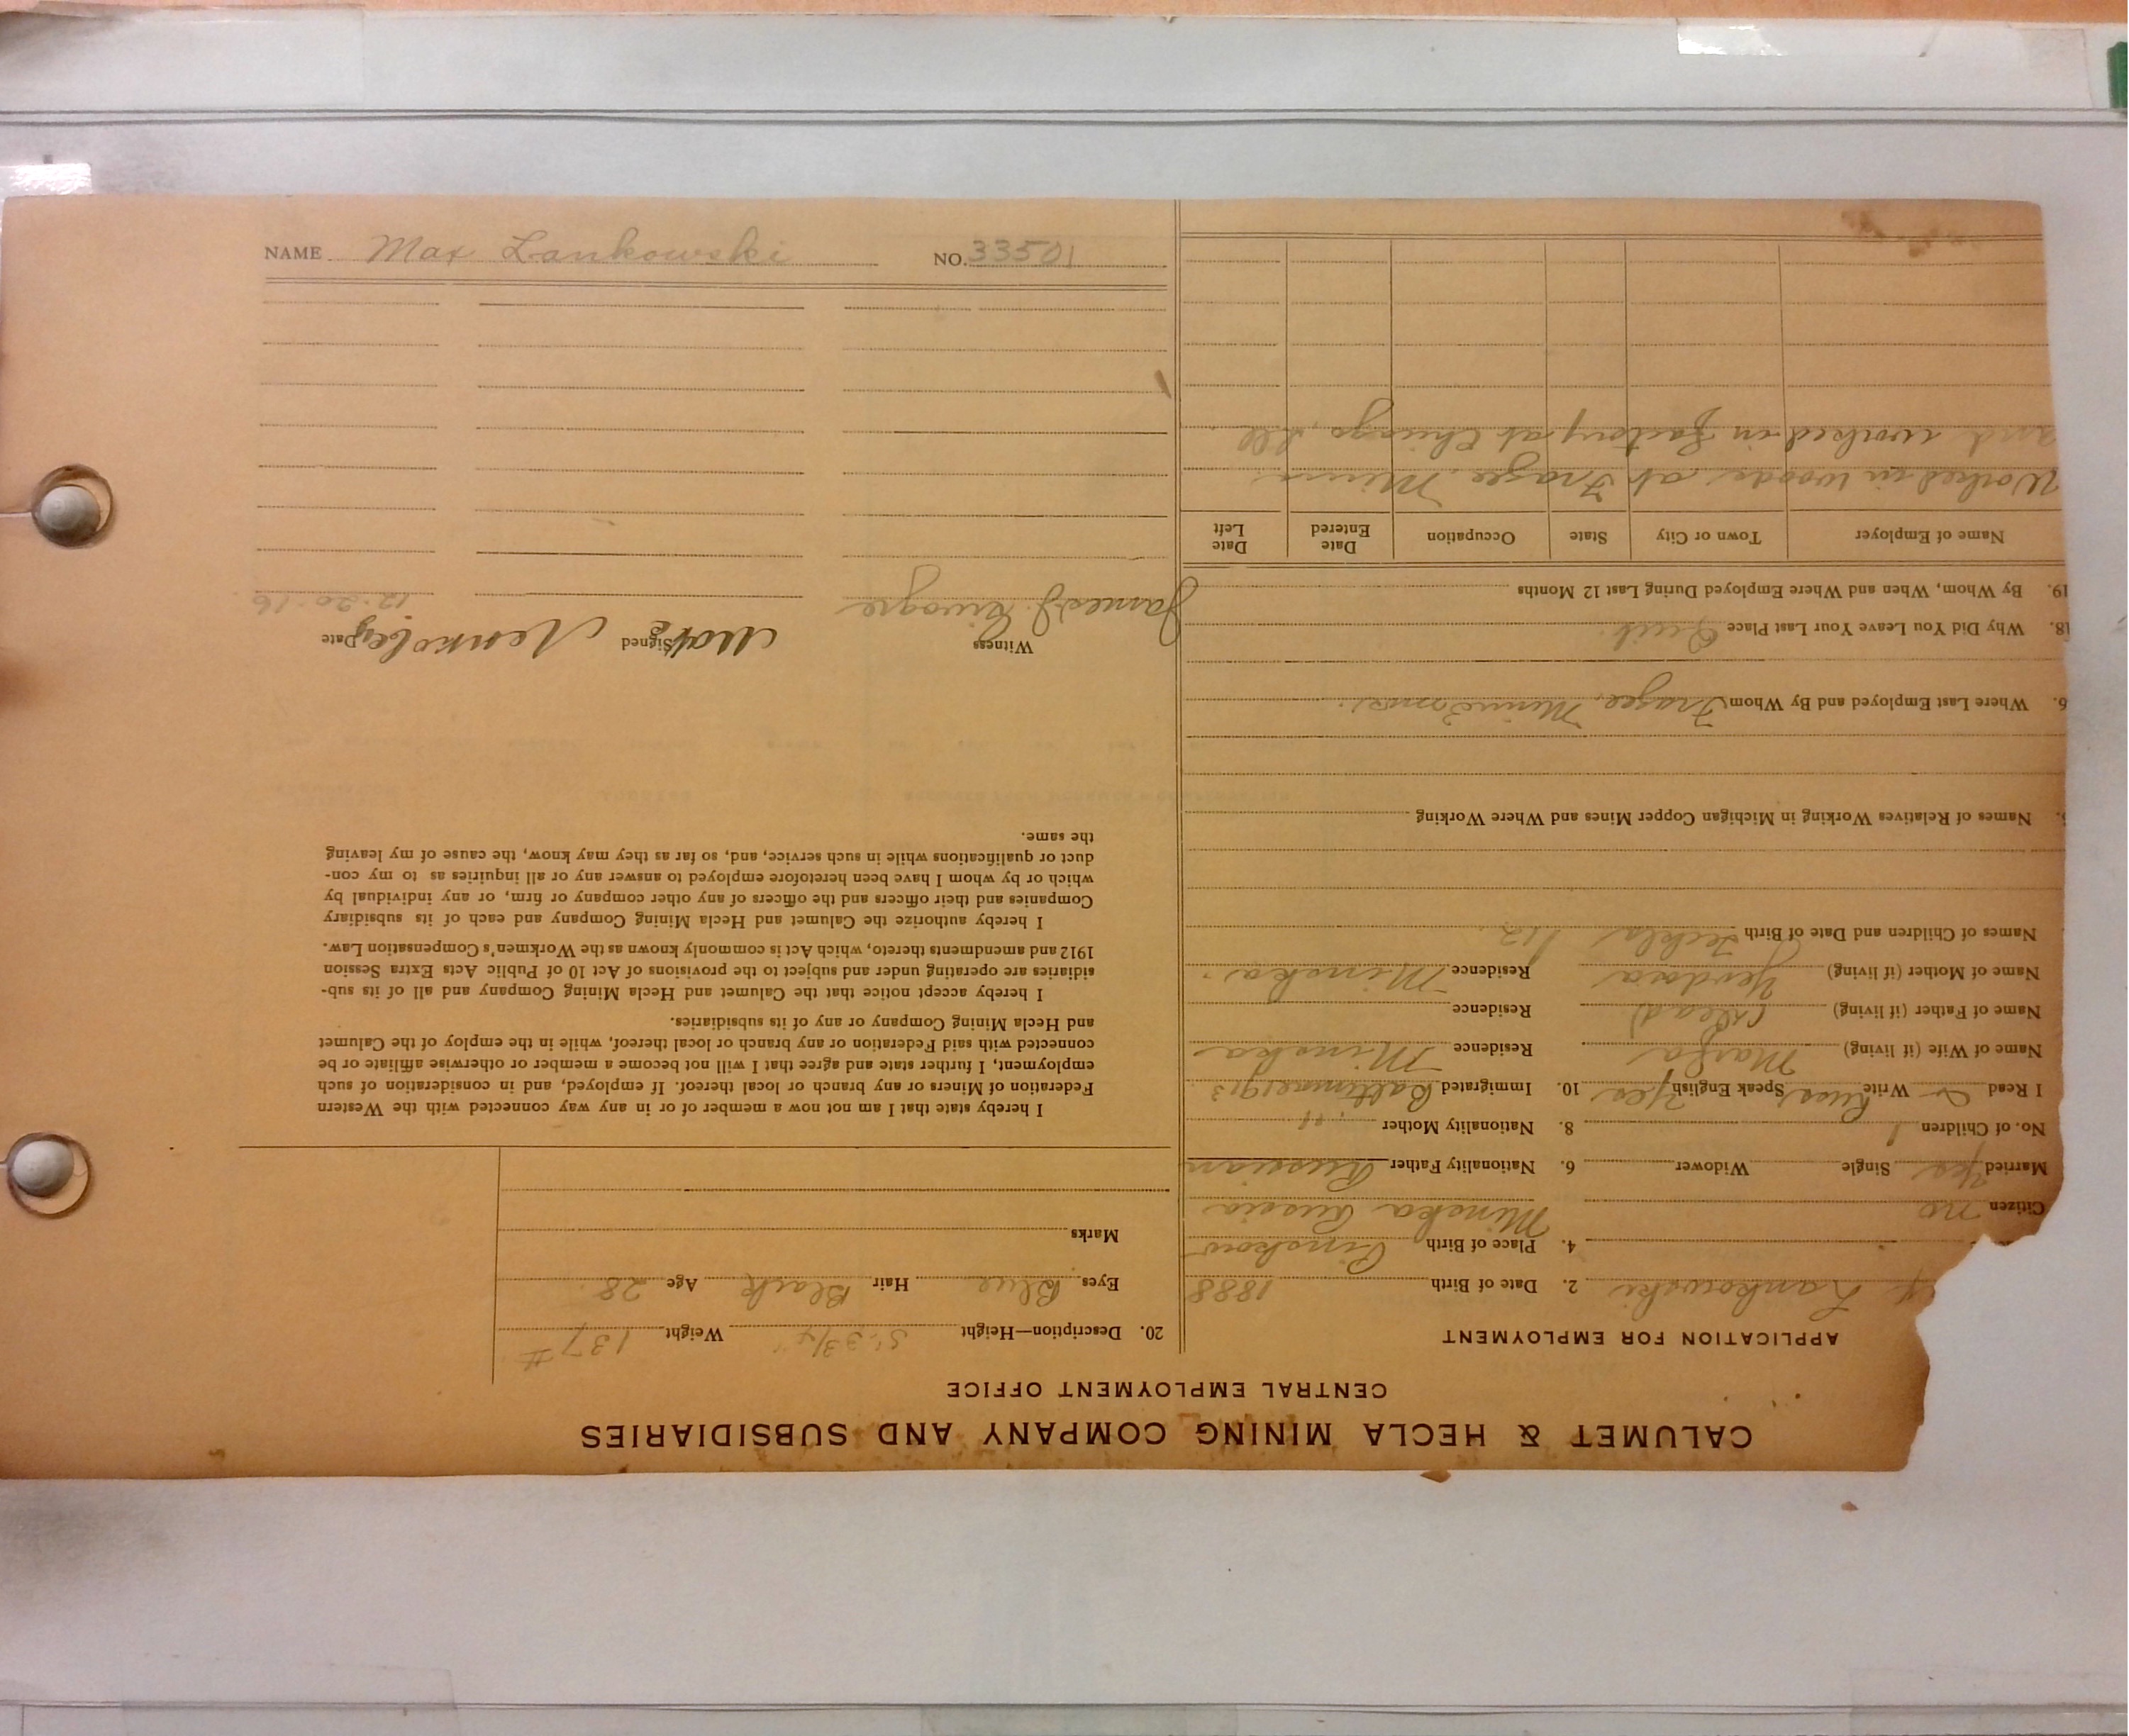 CALUMET & HECLA MINING COMPANY AND SUBSIDIARIES
CENTRAL EMPLOYMENT OFFICE
APPLICATION FOR EMPLOYMENT
Lankowski 2. Date of Birth 1888
4. Place of Birth Pinskow
Minska Russia
Citizen no
Married yes Single Widower 6. Nationality Father Russian
No. of Children 1 8. Nationality Mother "
I Read & Write Russ Speak English Yes 10. Immigrated Baltimore 1913
Name of Wife (if living) Residence Minska
Name of Father (if living) (dead) Residence
Name of Mother (if living) Residence Minska.
Names of Children and Date of Birth Teckla
Names of Relatives Working in Michigan Copper Mines and Where Working
6. Where Last Employed and By Whom Frazee, Minn
18. Why Did You Leave Your Last Place Quit.
19. By Whom, When and Where Employed During Last 12 Months
Name of Employer Town or City State Occupation Date Entered Date Left
Worked in woods at Frazee Minn.
and worked in factory at Chicago, Ill.
20. Description—Height 5'. 3 3/4" Weight 137 #
Eyes Blue Hair Black Age 28
Marks
I hereby state that I am not now a member of or in any way connected with the Western
Federation of Miners or any branch or local thereof. If employed, and in consideration of such
employment, I further state and agree that I will not become a member or otherwise affiliate or be
connected with said Federation or any branch or local thereof, while in the employ of the Calumet
and Hecla Mining Company or any of its subsidiaries.
I hereby accept notice that the Calumet and Hecla Mining Company and all of its sub-
sidiaries are operating under and subject to the provisions of Act 10 of Public Acts Extra Session
1912 and amendments thereto, which Act is commonly known as the Workmen's Compensation Law.
I hereby authorize the Calumet and Hecla Mining Company and each of its subsidiary
Companies and their officers and the officers of any other company or firm, or any individual by
which or by whom I have been heretofore employed to answer any or all inquiries as to my con-
duct or qualifications while in such service, and, so far as they may know, the cause of my leaving
the same.
Witness Signed Date
James J. 12-20-16
NAME Max Lankowski NO. 33501